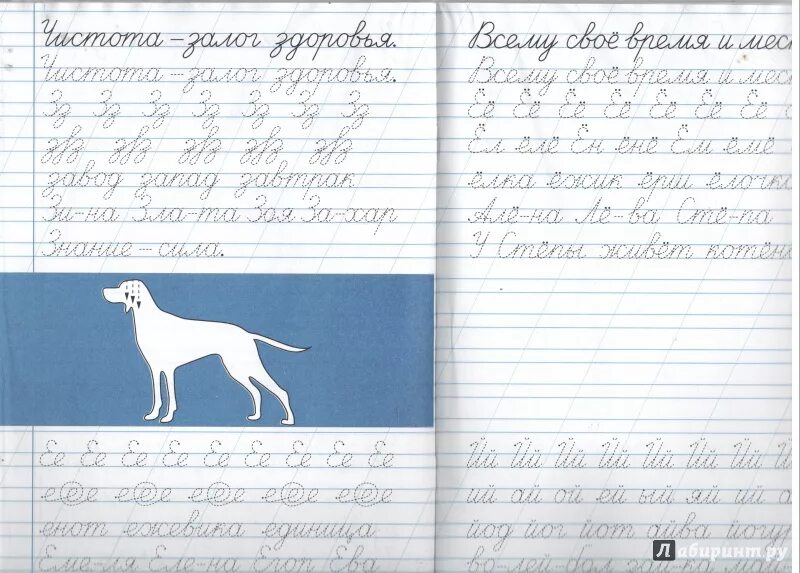 Чистота – залог здоровья.
Чистота – залог здоровья.
Зз Зз Зз Зз Зз Зз Зз
зВз зВз зВз зВз зВз зВз
завод запад завтрак
Зи-на Зла-та Зоя За-хар
Знание – сила.
Ее Ее Ее Ее Ее Ее Ее Ее Ее
е@е е@е е@е е@е е@е
енот ежевика единица
Еме-ля Еле-на Егор Ева
Всему своё время и мес
Всему своё время и мес
Ёё Ёё Ёё Ёё Ёё Ёё Ёё
Ёл ёлё Ён ёнё Ём ёмё
ёлка ёжик ёрш ёлочк
Алё-на Лё-ва Стё-па
У Стёпы живёт котён
Йй Йй Йй Йй Йй Йй Йй
ий ай ой ей ый яй ий а
йод йог йот айва йогу
во-лей-бол
Лабиринт.ру